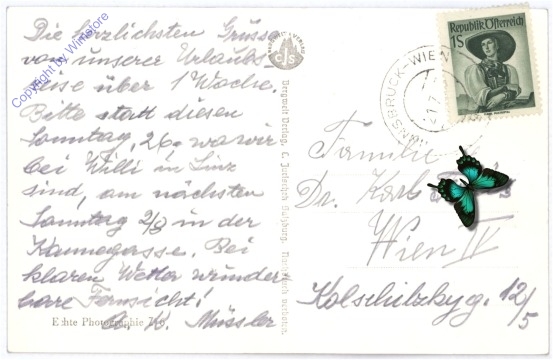 Die herzlichsten Grüsse
von unserer Urlaubs
reise über 1 Woche.
Bitte statt diesen
Sonntag, 26., wo wir
bei Willi in Linz
sind, am nächsten
Sonntag 2/8 in der
Kannegasse. Bei
klarem Wetter wunder
bare Fernsicht!
A. K. Müssler
Echte Photographie
Copyright by Winstore
CJS
Bergwelt Verlag, C. Jurischek Salzburg. Nachdruck verboten.
INNSBRUCK-WIEN
Republik Österreich
1S
Familie
Dr. Karl
Wien IV
Kolschitzkyg. 12/5